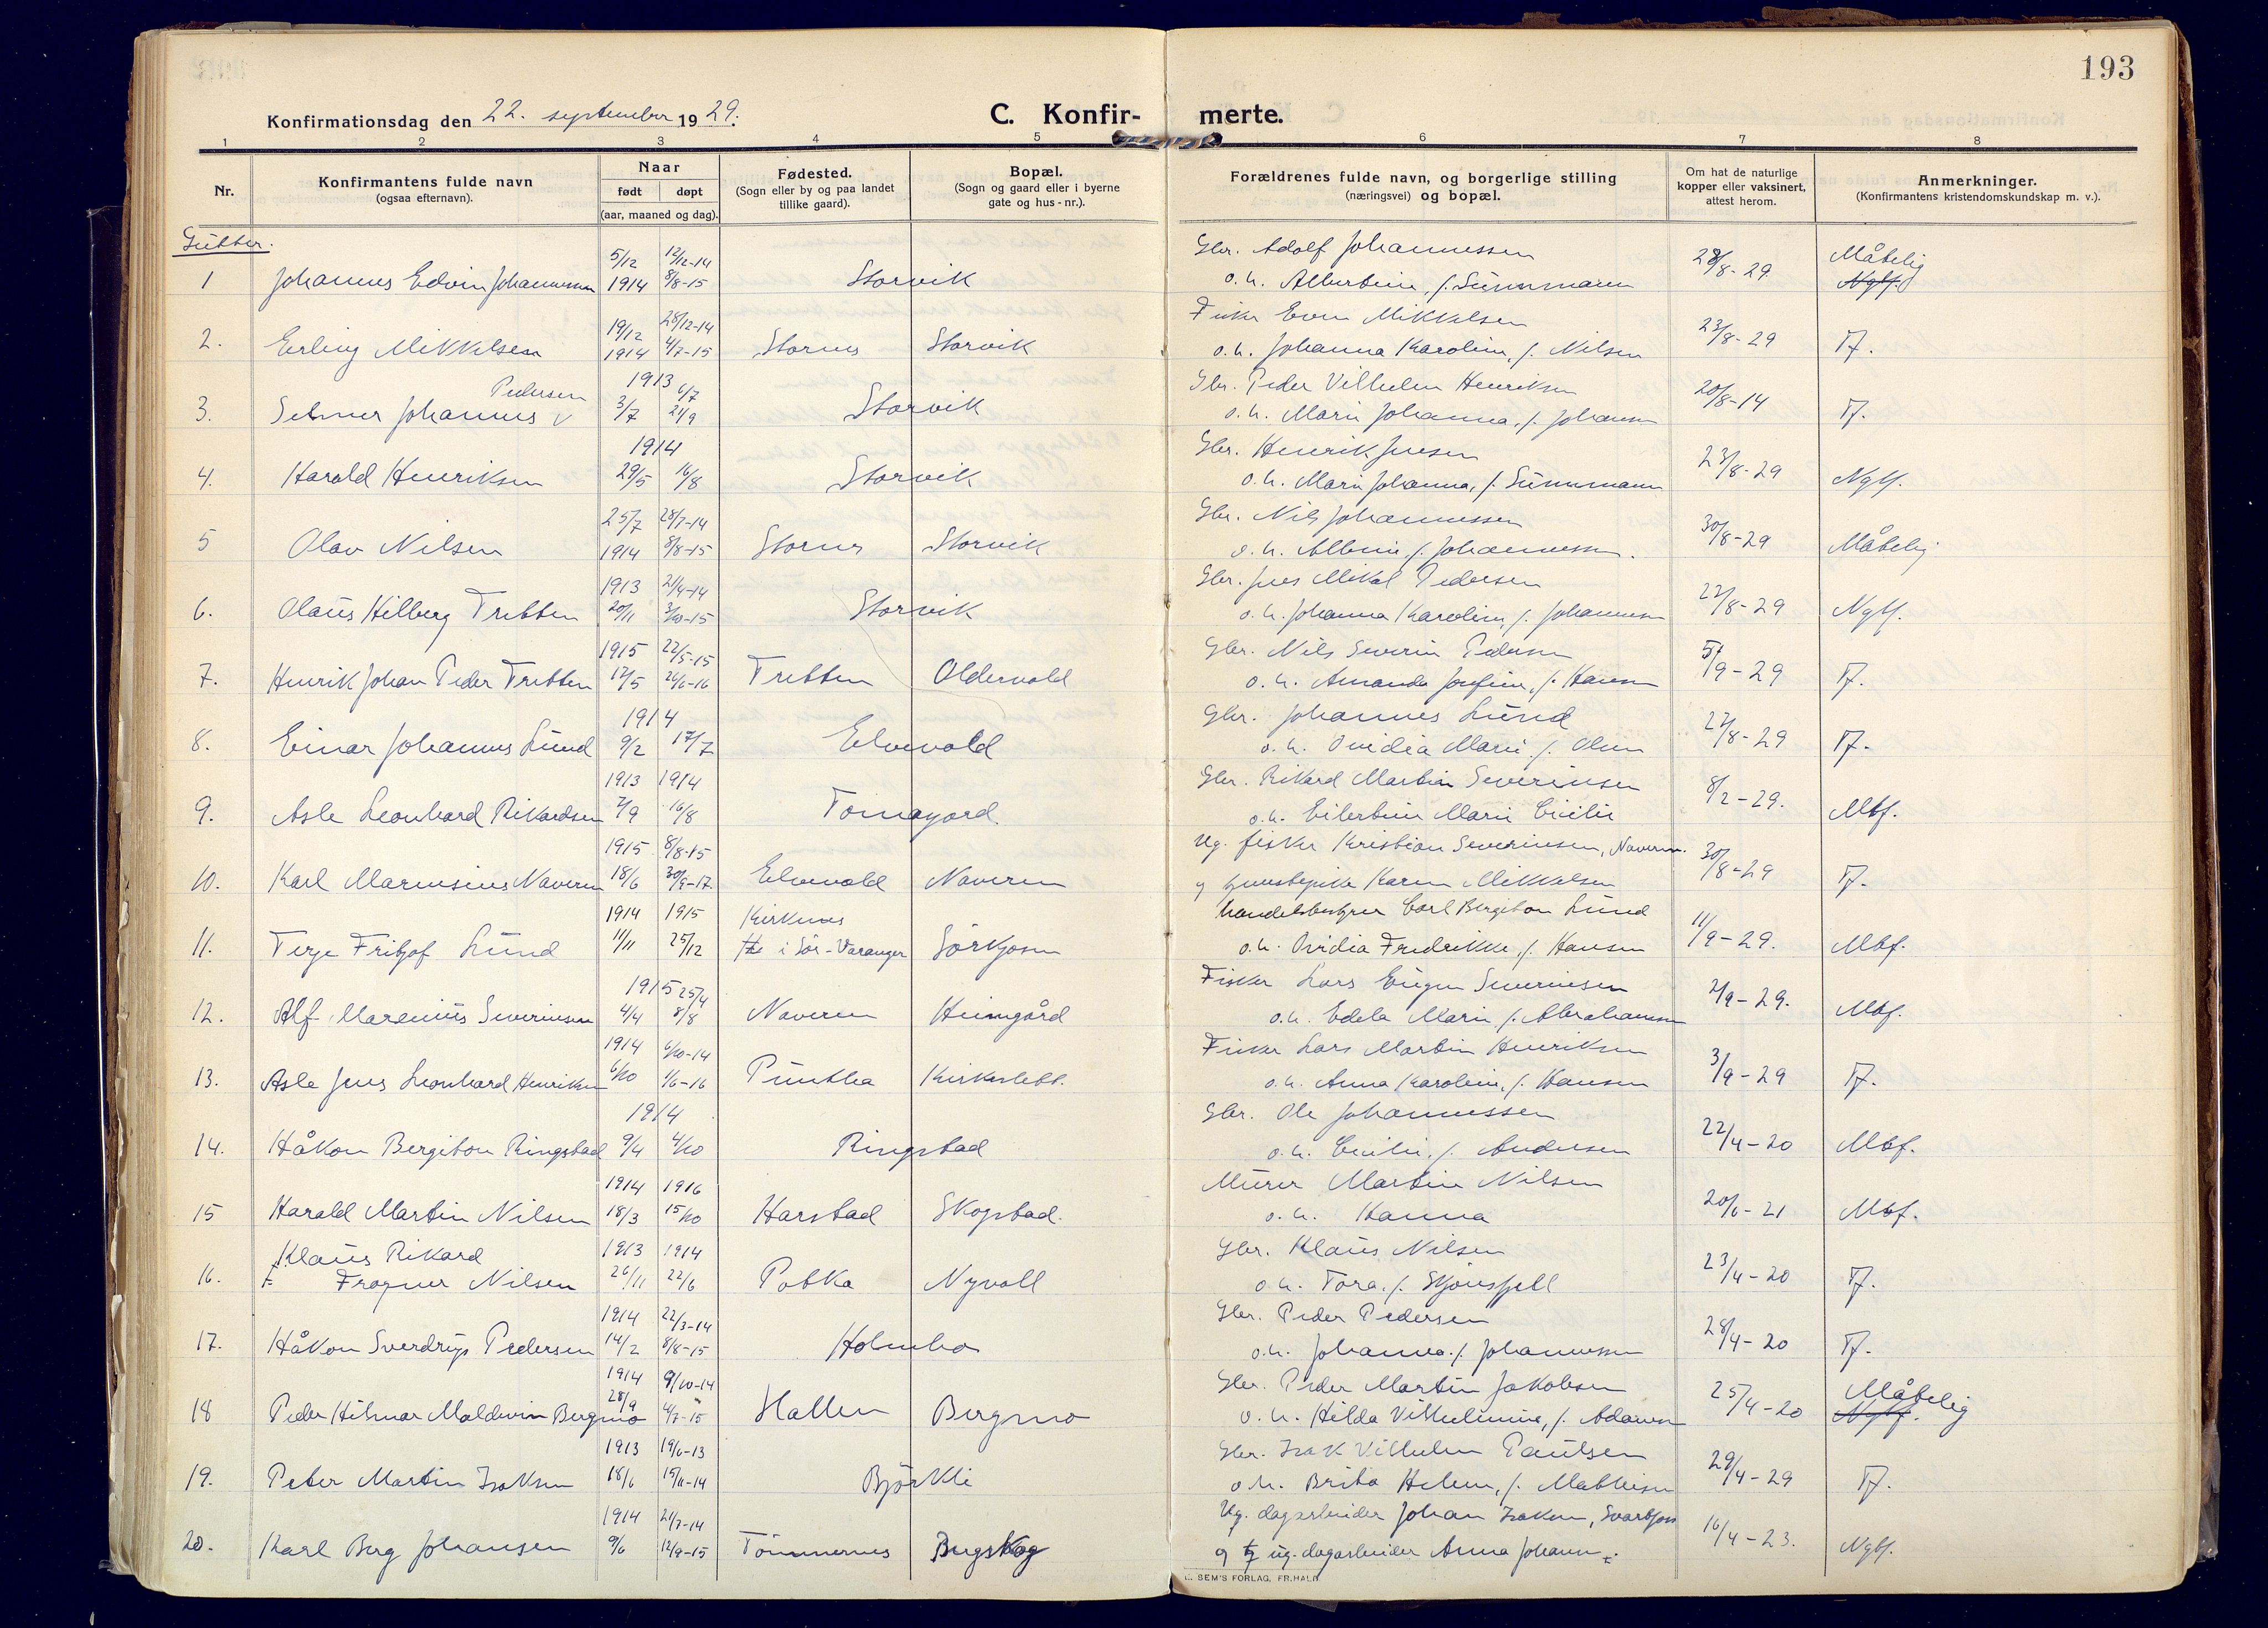 193
Konfirmationsdag den 22. september 1929.
C. Konfir- merte.
1 2 3 4 5 6 7 8
Nr.
Konfirmantens fulde navn
(ogsaa efternavn).
Naar
født døpt
(aar, maaned og dag).
Fødested.
(Sogn eller by og paa landet
tillike gaard).
Bopæl.
(Sogn og gaard eller i byerne
gate og hus-nr.).
Forældrenes fulde navn, og borgerlige stilling
(næringsvei) og bopæl.
Om hat de naturlige
kopper eller vaksinert,
attest herom.
Anmerkninger.
(Konfirmantens kristendomskundskap m. v.).
Gutter.
5/12 12/12-14 Gbr. Adolf Johannessen Måtelig
1 Johannes Edvin Johannessen 1914 8/8-15 Storvik o.h. Albertine, f. Simonsen 28/8-29 Ngtf.
19/12 28/12-14 Fisker Even Mikkelsen
2. Erling Mikkelsen 1914 4/7-15 Stornes Storvik o.h. Johanna Karoline, f. Nilsen 23/8-29 Tf.
Pedersen 1913 6/7 Gbr. Peder Vilhelm Henriksen
3. Selmer Johannes v 3/7 21/9 Storvik o.h. Marie Johanna, f. Johansen 20/8-14 Tf.
1914 Gbr. Henrik Jensen
4. Harald Henriksen 29/5 16/8 Storvik o.h. Marie Johanna, f. 23/8-29 Ngtf.
25/7 28/7-14 Gbr. Nils Johannessen
5 Olav Nilsen 1914 8/8-15 Stornes Storvik o.h. Albine, f. Johannessen. 30/8-29 Måtelig
1913 21/4-14 Gbr. Jens Mikal Pedersen
6. Olaus Hilberg Tretten 20/11 3/10-15 Storvik o.h. Johanna Karoline, f. Johannessen 22/8-29 Ngtf.
1915 22/5-15 Gbr. Nils Severin Pedersen
7. Henrik Johan Peder Tretten 12/5 26/6-16 Tretten Oldervold o.h. Amanda Josefine, f. Hansen 5/9-29 Tf.
1914 Gbr. Johannes Lund
8. Einar Johannes Lund 9/2 17/7 Elvevold o.h. Ovidia Marie, f. Olsen 27/8-29 Tf.
1913 1914 Gbr. Rikard Martin Severinsen
9. Asle Leonhard Rikardsen 7/9 16/8 Tomagård o.h. Eilertine Marie Cecilie 8/2-29. Mtf.
1915 8/8-15 Ug. fisker Kristian Severinsen, Naveren.
10. Karl Marensius Naveren 18/6 30/9-17 Elvevold Naveren og tjenestepike Karen Mikkelsen 30/8-29 Tf.
1914 1915 Kirkenes handelsbestyrer Carl Bergiton Lund
11. Terje Fritjof Lund 11/11 25/12 i Sör-Varanger Sörkjosen o.h. Ovidia Fredrikke, f. Hansen 11/9-29. Mtf.
1915 25/4 Fisker Lars Eugen Severinsen
12. Alf Marenius Severinsen 4/4 8/8 Naveren Heimgård o.h. Edela Marie, f. Abrahamsen 2/9-29. Mtf.
1914 6/10-14 Fisker Lars Martin Henriksen
13. Asle Jens Leonhard Henriksen 6/10 1/6-16 Puntta Kirkeslett. o.h. Anna Karoline, f. Hansen 3/9-29 Tf.
1914 Gbr. Ole Johannessen
14. Håkon Bergiton Ringstad 9/4 4/10 Ringstad o.h. Cecilie, f. Andersen 22/4-20 Mtf.
1914 1916 Murer Martin Nilsen
15 Harald Martin Nilsen 18/3 15/10 Harstad Skogstad. o.h. Hanna 20/6-21 Mtf.
Klaus Rikard 1913 1914 Gbr. Klaus Nilsen
16. Frogner Nilsen 26/11 22/6 Potka Nyvoll o.h. Tora, f. Skjönsfjell 23/4-20 Tf.
1914 22/3-14 Gbr. Peder Pedersen
17. Håkon Sverdrup Pedersen 14/2 8/8-15 Holmbo o.h. Johanna, f. Johannessen 28/4-20 Tf.
1914 9/10-14 Gbr. Peder Martin Jakobsen Måtelig
18 Peder Hilmar Maldevin Bergmo 28/9 4/7-15 Hallen Bergmo o.h. Hilda Vilhelmine, f. Adamsen 25/4-20 Ngtf.
1913 19/6-13 Gbr. Isak Vilhelm Paulsen
19. Peter Martin Isaksen 18/6 15/11-14 Björkli o.h. Brita Helene, f. Mathisen 29/4-29 Tf.
1914 21/7-14 Ug. dagarbeider Johan Isaksen, Svartfoss
20. Karl Berg Johansen 9/6 12/9-15 Tömmernes Bergskog og ug. dagarbeider Anna 16/4-23. Ngtf.
SEM'S FORLAG, FR.HALD